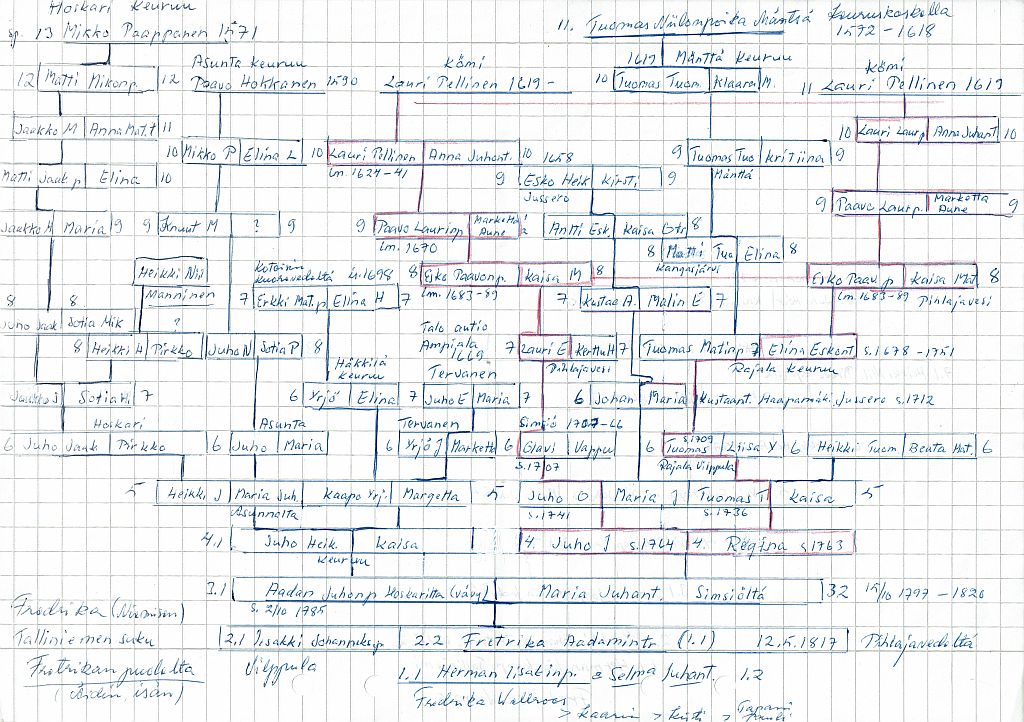 Hoskari Keuruu
sp. 13 Mikko Paappanen 1571
11. Tuomas Niilonpoika Mänttä Keuruskoskella
1592-1618
12 Matti Mikonp. 12
Asunta Keuruu
Paavo Hokkanen 1590
Kömi
Lauri Pellinen 1619-
1619 Mänttä Keuruu
10 Tuomas Tuom. Klaara M.
Kömi
11 Lauri Pellinen 1619
Jaakko M Anna Mat.t 11
10 Lauri Laurp. Anna Juhant. 10
10 Mikko P Elina L 10 Lauri Pellinen Anna Juhant. 10 1658
lm. 1624-41
9 Tuomas Tuo Kristiina 9
Mänttä
Matti Jaak.p Elina 10
9 Esko Heik Kirsti 9
Jussero
9 Paavo Laurp. Marketta Aune 9
Jaakko M Maria 9 9 Knuut M ? 9
9 Paavo Laurinp Marketta Aune
lm. 1670
Antti Esk Kaisa Dtr 8
8 Matti Tuo Elina 8
Kangasjärvi
Heikki Nii
Manninen
Kotoisin
Kuorevedeltä k. 1698
8 Esko Paavonp. Kaisa M 8
lm. 1683-89
8 Esko Paav.p Kaisa Mat. 8
lm. 1683-89 Pihlajavesi
7 Erkki Mat.p Elina H 7
7. Kustaa A. Malin E 7
8 8
Juho Jaak Sofia Mik ?
8 Heikki H Pirkko Juho N Sofia P 8
Talo autio
Ampiala
1669
7 Lauri E Kerttu H 7
Pihlajavesi
Tuomas Matinp 7 Elina Eskont s. 1678-1751
Rajala Keuruu
Häkkilä
Keuruu
Tervanen
Jaakko J Sofia H. 7
Hoskari
6 Yrjö Elina 7 Juho E Maria 7
6 Johan Maria
Kustaant. Haapamäki Jussero s. 1712
Asunta
Tervanen
Simsiö 1707-66
6 Juho Jaak Pirkko 6 Juho Maria
6 Yrjö J Marketta 6 Olavi Vappu
s. 1707
6 s. 1709 Tuomas Liisa Y 6
Rajala Vilppula
Heikki Tuom Beata Mat. 6
5 Heikki J Maria Juh. Kaapo Yrj. Margetta 5
Asunnalta
Juho O Maria J Tuomas T Kaisa 5
s. 1741 s. 1736
4.1 Juho Heik. Kaisa
Keuruu
4. Juho J s. 1764 4. Regina s 1763
3.1 Aadan Juhonp Hoskarilta (vävy) Maria Juhant. Simsiöltä 3.2 15/10 1797-1826
s. 2/10 1785
Fredrika (Nieminen)
Talliniemen suku
2.1 Iisakki Johanneksp 2.2 Fretrika Aadamintr (1.1) 12.5.1817 Pihlajavedeltä
Fretrikan puolelta
(äidin isän)
Vilppula
1.1 Herman Iisakinp. & Selma Juhant. 1.2
Fredrika Wallroos
> Kaarin > Kirsti > Tapani
Pauli